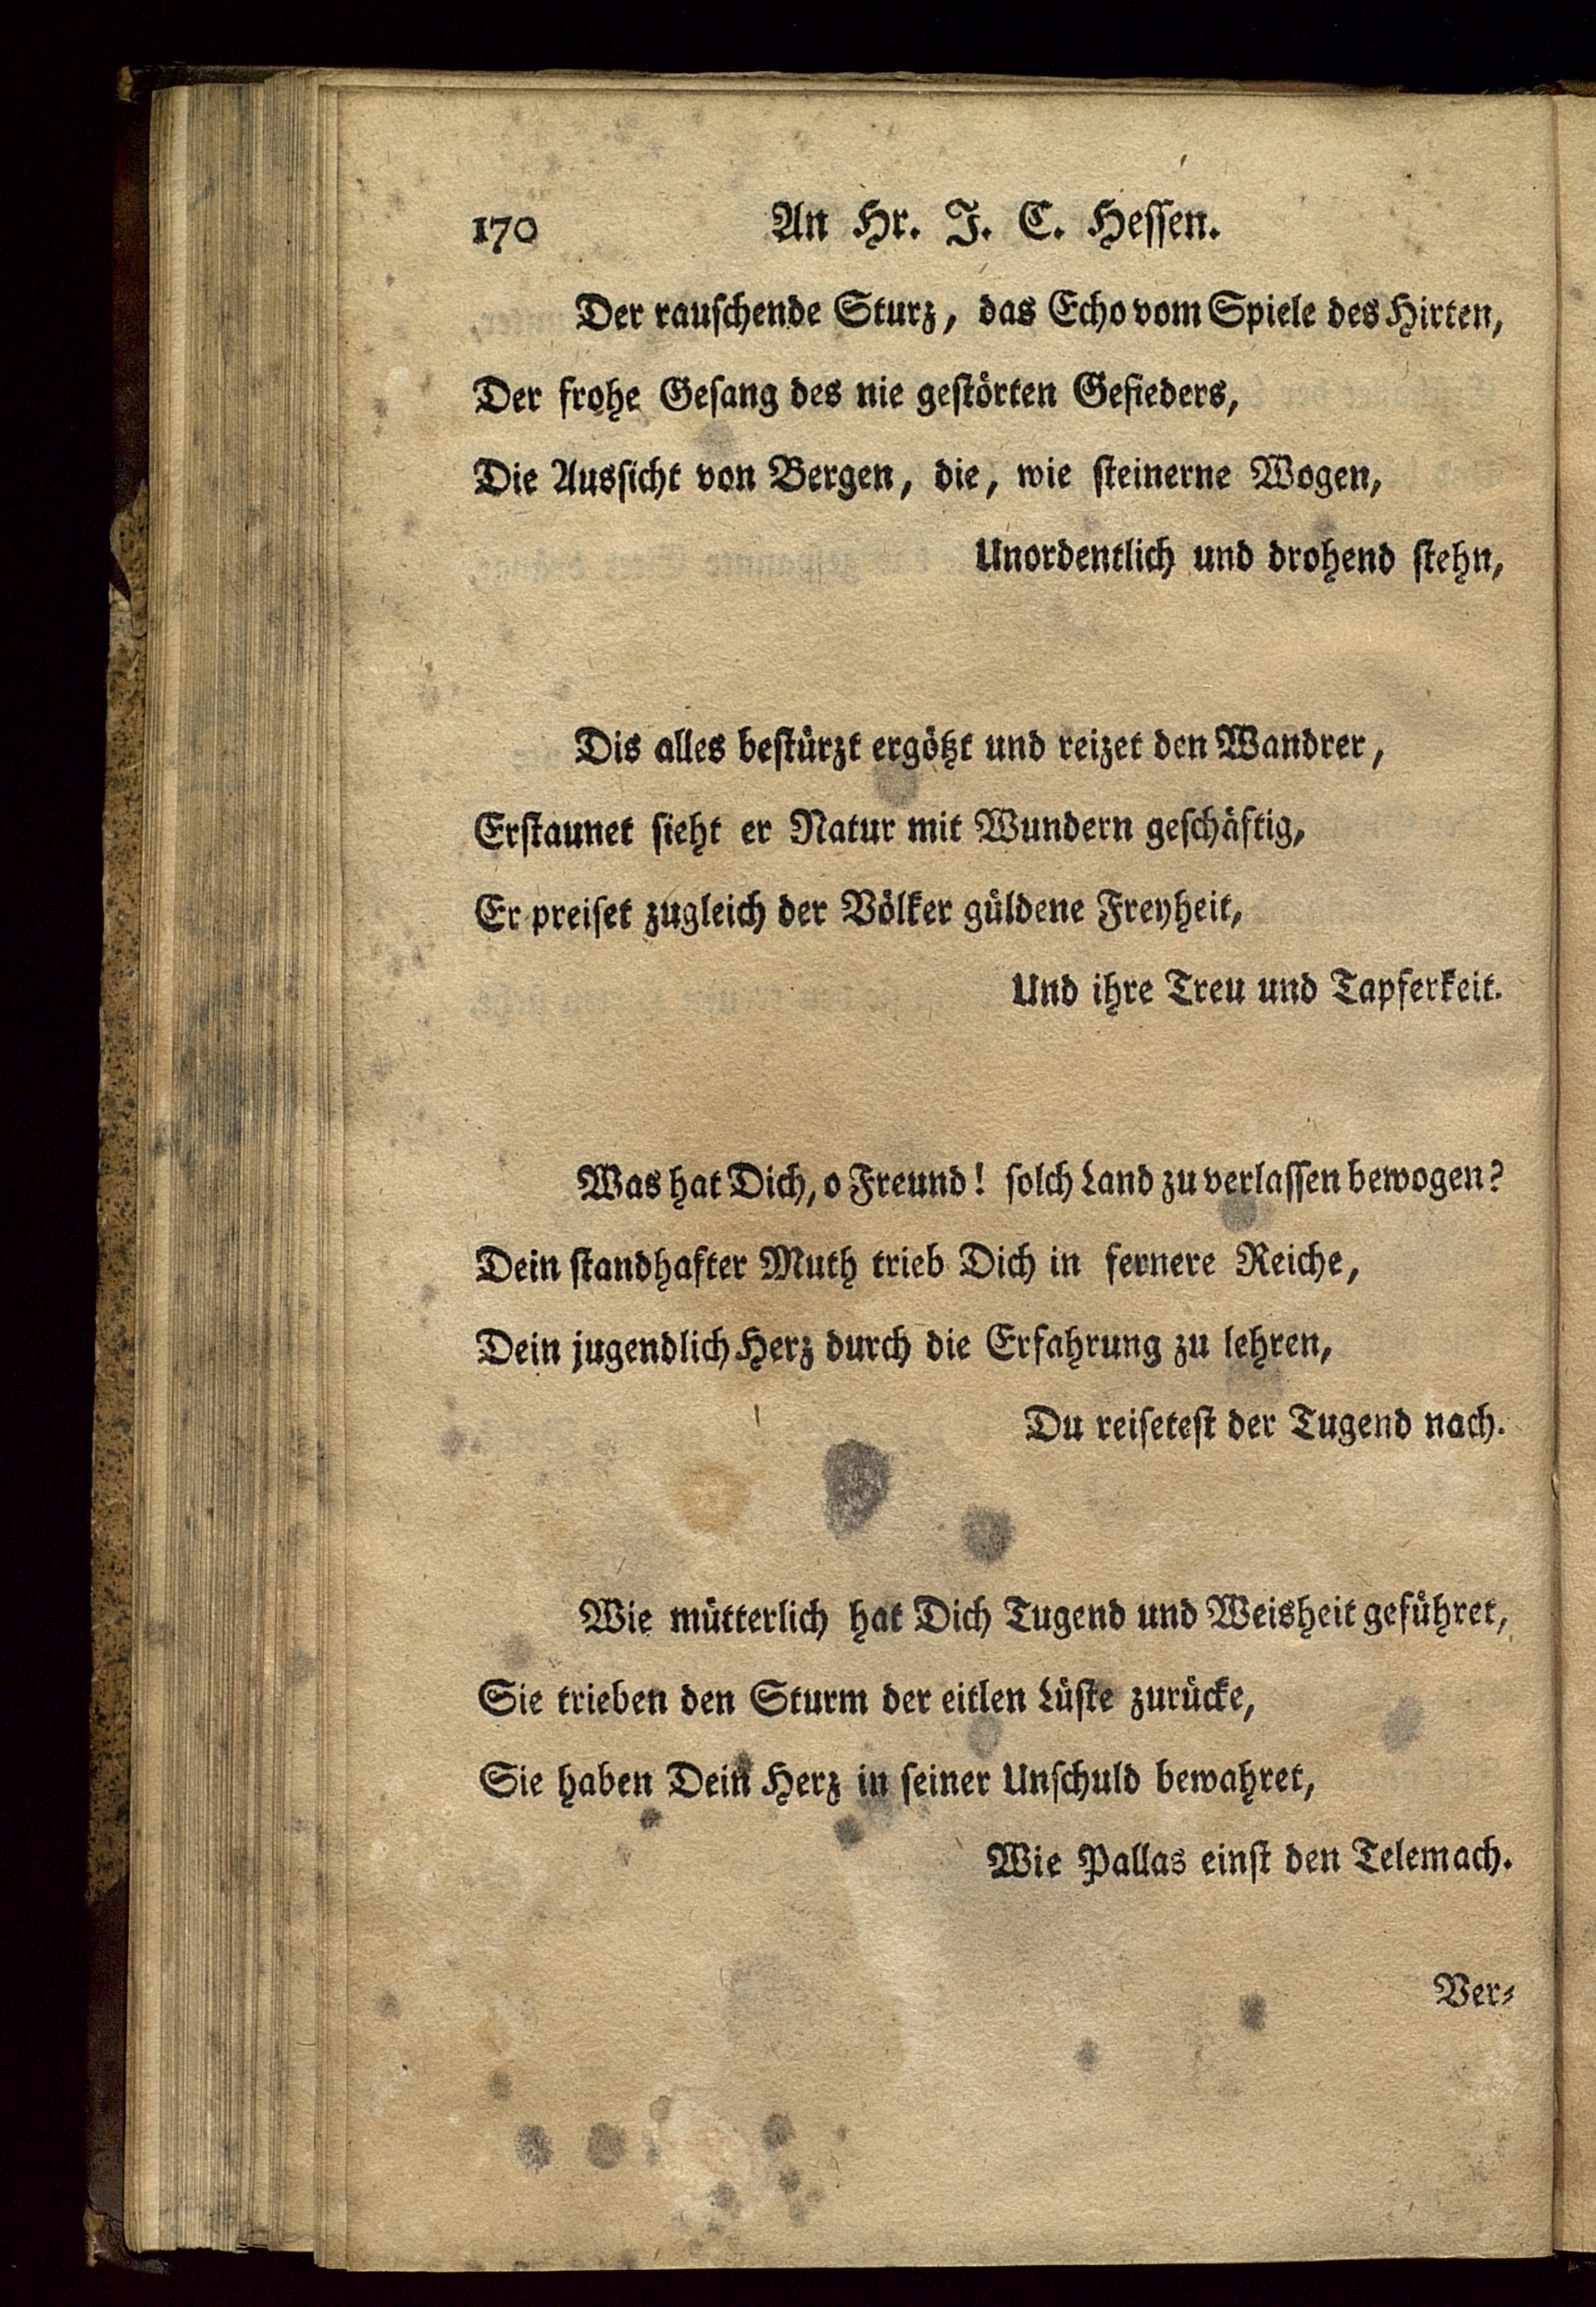 170 An Hr. J. C. Hessen.
Der rauschende Sturz, das Echo vom Spiele des Hirten,
Der frohe Gesang des nie gestörten Gefieders,
Die Aussicht von Bergen, die, wie steinerne Wogen,
Unordentlich und drohend stehn,
Dis alles bestürzt ergötzt und reizet den Wandrer,
Erstaunet sieht er Natur mit Wundern geschäftig,
Er preiset zugleich der Völker güldene Freyheit,
Und ihre Treu und Tapferkeit.
Was hat Dich, o Freund! solch Land zu verlassen bewogen?
Dein standhafter Muth trieb Dich in fernere Reiche,
Dein jugendlich Herz durch die Erfahrung zu lehren,
Du reisetest der Tugend nach.
Wie mütterlich hat Dich Tugend und Weisheit geführet,
Sie trieben den Sturm der eitlen Lüste zurücke,
Sie haben Dein Herz in seiner Unschuld bewahret,
Wie Pallas einst den Telemach.
Ver-